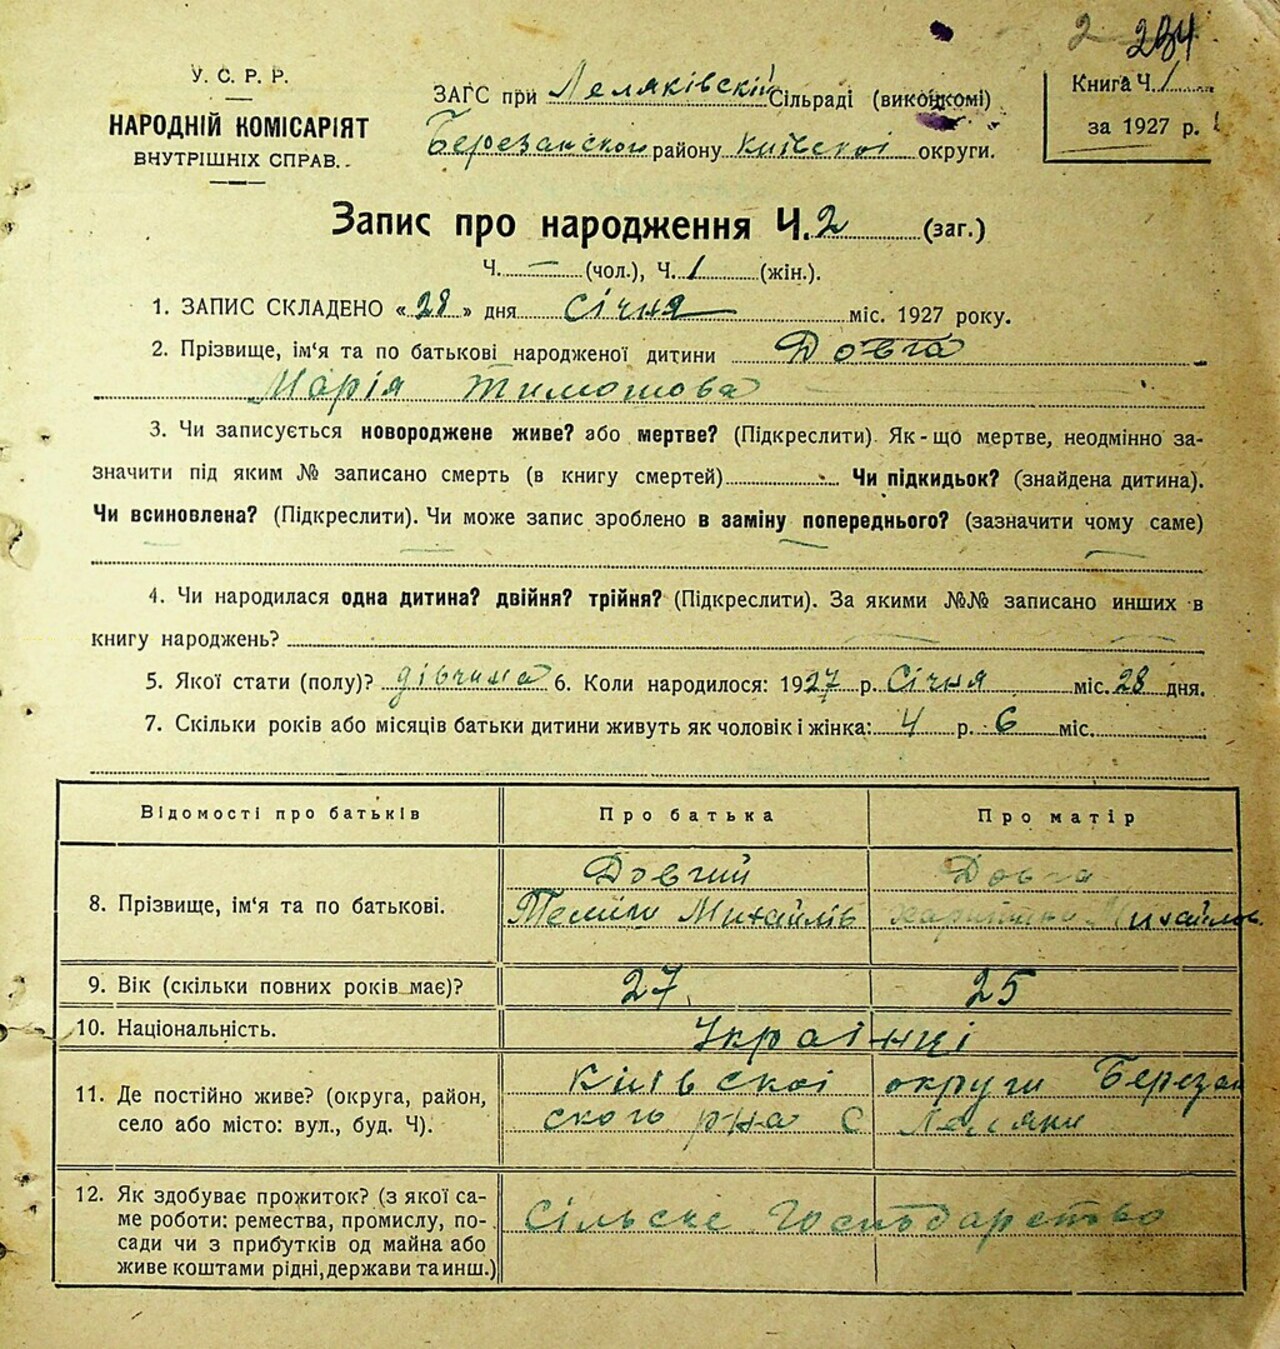 2 234
У. С. Р. Р.
НАРОДНІЙ КОМІСАРІЯТ
ВНУТРІШНІХ СПРАВ.
ЗАГС при Леляківскій Сільраді (виконкомі)
Березанского району Київскої округи.
Книга Ч. 1
за 1927 р.
Запис про народження Ч. 2 (заг.)
Ч. — (чол.), Ч. 1 (жін.).
1. ЗАПИС СКЛАДЕНО «28» дня Січня міс. 1927 року.
2. Прізвище, ім‘я та по батькові народженої дитини Довга
Марія Тимошова
3. Чи записується новороджене живе? або мертве? (Підкреслити). Як-що мертве, неодмінно за-
значити під яким № записано смерть (в книгу смертей) Чи підкидьок? (знайдена дитина).
Чи всиновлена? (Підкреслити). Чи може запис зроблено в заміну попереднього? (зазначити чому саме)
4. Чи народилася одна дитина? двійня? трійня? (Підкреслити). За якими №№ записано инших в
книгу народжень?
5. Якої стати (полу)? дівчина 6. Коли народилося: 1927 р. Січня міс. 28 дня.
7. Скільки років або місяців батьки дитини живуть як чоловік і жінка: 4 р. 6 міс.
Відомості про батьків Про батька Про матір
8. Прізвище, ім‘я та по батькові.
Довгий Довга
Михайлів Михайлов
9. Вік (скільки повних років має)? 27. 25
10. Національність. Українці
11. Де постійно живе? (округа, район,
село або місто: вул., буд. Ч).
Київскої округи Березан
ского р-на С Леляки
12. Як здобуває прожиток? (з якої са-
ме роботи: ремества, промислу, по-
сади чи з прибутків од майна або
живе коштами рідні, держави та инш.)
Сільске Господарство